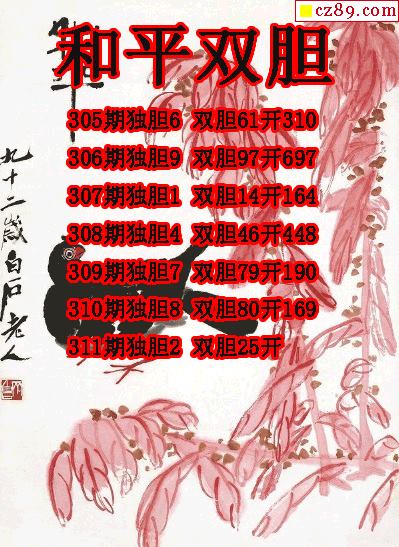 cz89.com
和平双胆
305期独胆6 双胆61开310
306期独胆9 双胆97开697
307期独胆1 双胆14开164
308期独胆4 双胆46开448
309期独胆7 双胆79开190
310期独胆8 双胆80开169
311期独胆2 双胆25开
九十二岁白石老人